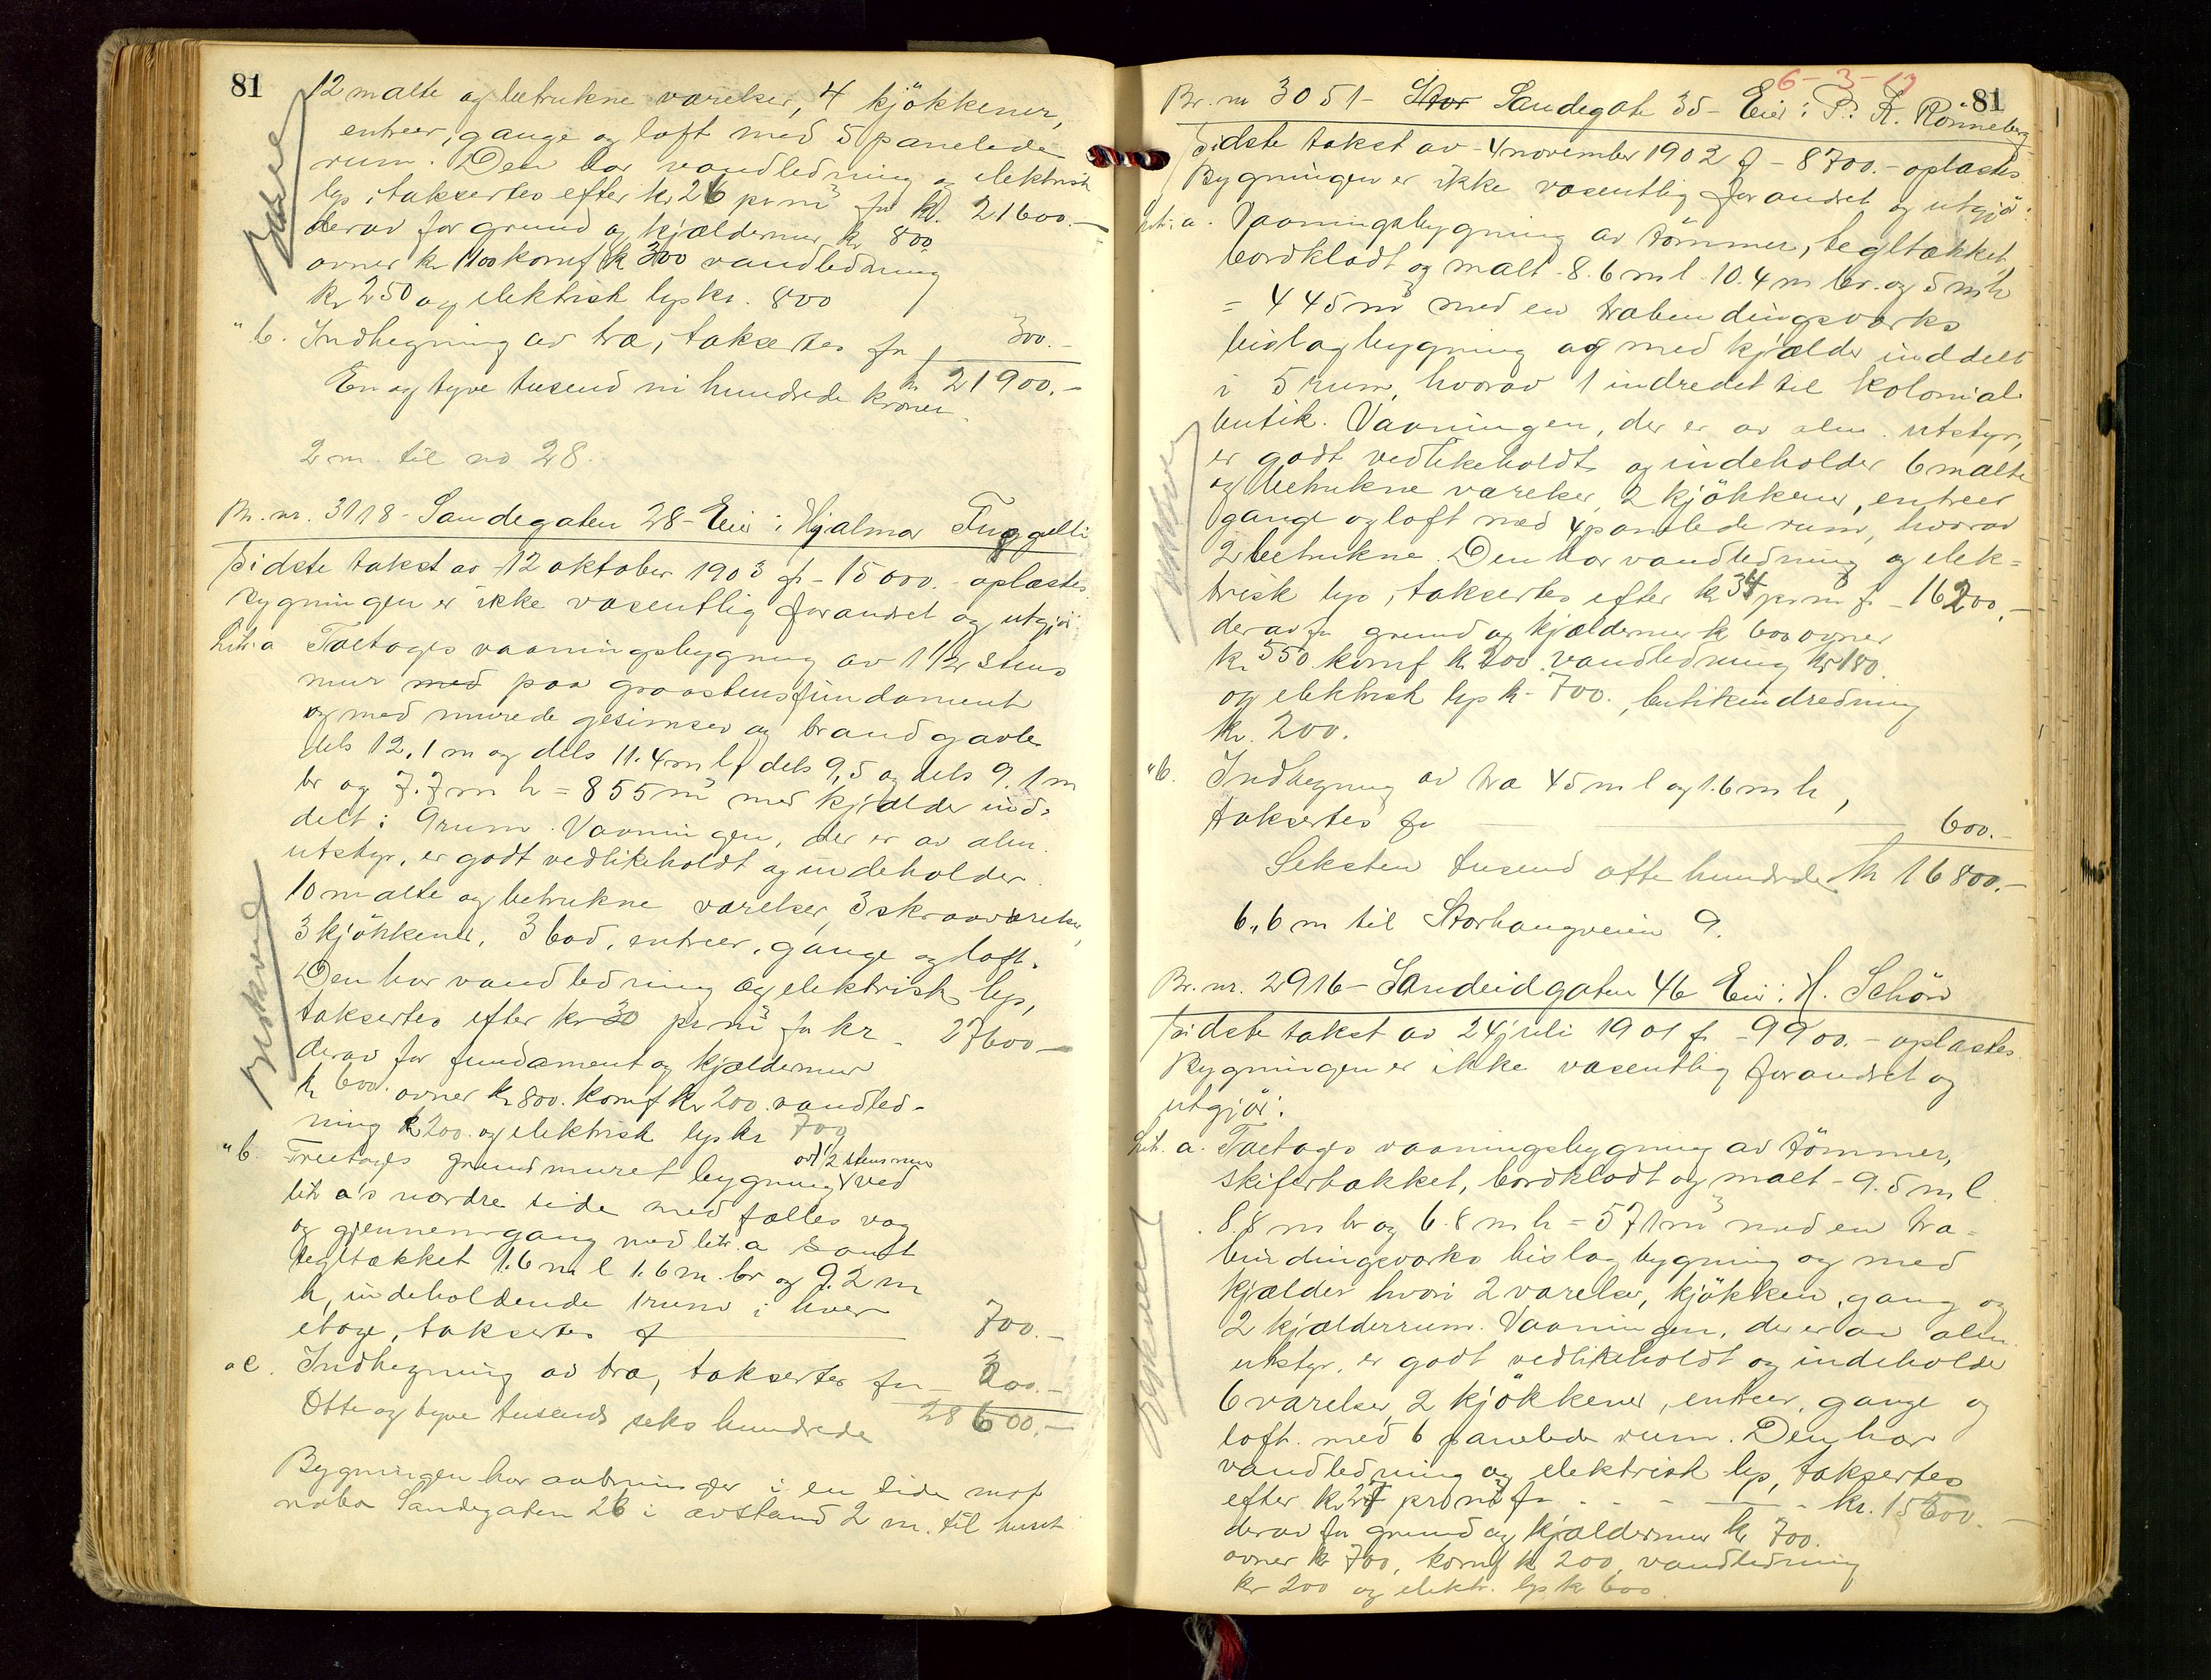 81
12 malte og betrukne værelser, 4 kjökkener,
entreer, gange og loft med 5 panelede
rum. Den har vandledning og elektrisk
lys, takseres efter kr 26 pr m³ for kr. 21600.-
derav for grund og kjældermur kr 800.
ovner kr 1100 komf kr 300 vandledning
kr 250 og elektrisk lys kr. 800
"b. Indhegning av træ, takseres for 300.-
kr 21900.-
En og tyve tusend ni hundrede kroner
2 m. til no 28.
Br. nr. 3118 - Sandegaten 28 - Eier: Hjalmar Fuggelli
Sidste takst av 12 oktober 1903 fr - 15000.- oplæstes.
Bygningen er ikke væsentlig forandret og utgjør:
Litr. a Toetages vaaningsbygning av 1 1/2 stens
mur med paa graastensfundament
og med murede gesimser og brandgavle
dels 12,1 m og dels 11.4 m l, dels 9,5 og dels 9.1 m
br og 7.7 m h = 855 m³ med kjælder ind-
delt i 9 rum. Vaaningen, der er av alm.
utstyr, er godt vedlikeholdt og indeholder
10 malte og betrukne værelser, 3 skraaværelser,
3 kjökkener, 3 bod, entreer, gange og loft.
Den har vandledning og elektrisk lys,
takseres efter kr 30 pr m³ for kr - 27600 -
derav for fundament og kjældermur
kr 600. ovner kr 800. komf kr 200. vandled-
ning kr 200. og elektrisk lys kr 700
av 1/2 stens mur
"b. Treetages grundmuret bygning ved
litr a's nordre side med fælles væg
og gjennemgang med litr. a samt
tegltækket 1.6 m l 1.6 m. br og 9.2 m
h, indeholdende 1 rum i hver
etage, takseres f 700.-
"c. Indhegning av træ, takseres for - 300.-
Otte og tyve tusende seks hundrede 28600.-
Bygningen har aabninger i en side mot
nabo Sandegaten 26 i avstand 2 m. til huset
6-3-19
81
Br. nr 3051 - Stor Sandegate 35 - Eier: P. K. Rönneberg
Sidste takst av - 4 november 1902 f - 8700.- oplæstes
Bygningen er ikke væsentlig forandret og utgjör:
Litr. a. Vaaningsbygning av tömmer, tegltækket,
bordklædt og malt - 8.6 m l - 10.4 m br. og 5 m h
= 445 m³ med en træbindingsverks
bislagbygning og med kjælder inddelt
i 5 rum, hvorav 1 indredet til kolonial-
butik. Vaaningen, der er av alm. utstyr,
er godt vedlikeholdt og indeholder 6 malte
og betrukne værelser, 2 kjökkener, entreer
gange og loft med 4 panelede rum, hvorav
2 betrukne. Den har vandledning og elek-
trisk lys, takseres efter kr 34 pr m³ f - 16200.-
derav for grund og kjældermur kr 600 ovner
kr 550. komf kr 200 vandledning kr 180.
og elektrisk lys kr - 700., butikindredning
kr. 200.
"b. Indhegning av træ 45 m l og 1.6 m h,
takseres for 600.-
Seksten tusend otte hundrede kr 16800.-
6,6 m til Storhaugveien 9.
Br. nr. 2916 - Sandeidgaten 46 Eier: H. Schön
Sidste takst av 24 juli 1901 f - 9900.- oplæstes.
Bygningen er ikke væsentlig forandret og
utgjör:
Litr. a. Toetages vaaningsbygning av tömmer,
skifertækket, bordklædt og malt - 9.5 m l
8.8 m br og 6.8 m h = 571 m³ med en træ-
bindingsverks bislagbygning og med
kjælder hvori 2 værelser, kjökken, gang og
2 kjælderrum. Vaaningen, der er av alm
utstyr, er godt vedlikeholdt og indeholder
6 værelser, 2 kjökkener, entreer, gange og
loft. med 6 panelede rum. Den har
vandledning og elektrisk lys, takseres
efter kr 27 pr m³ f - - - - kr. 15500.-
derav for grund og kjældermur kr 700.
ovner kr 700, komf kr 200, vandledning
kr 200 og elektr. lys kr 600.